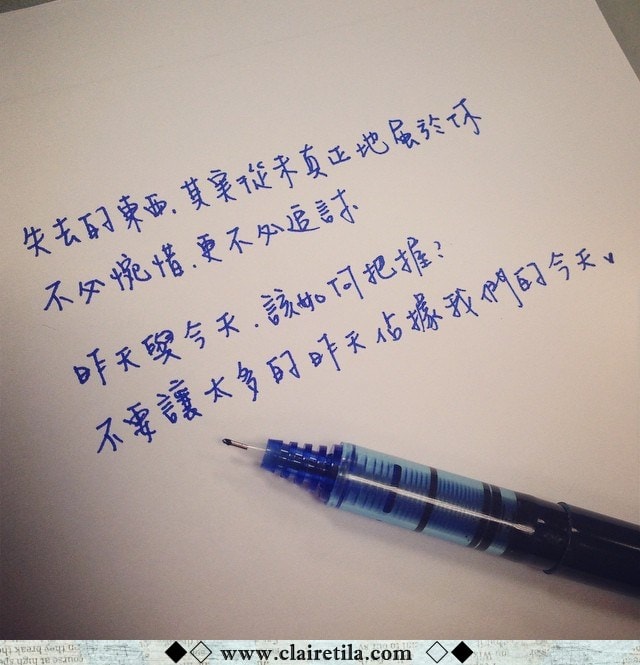 失去的東西，其實從未真正地屬於你
不必惋惜，更不必追討.
昨天與今天，該如何把握？
不要讓太多的昨天佔據我們的今天。
www.clairetila.com